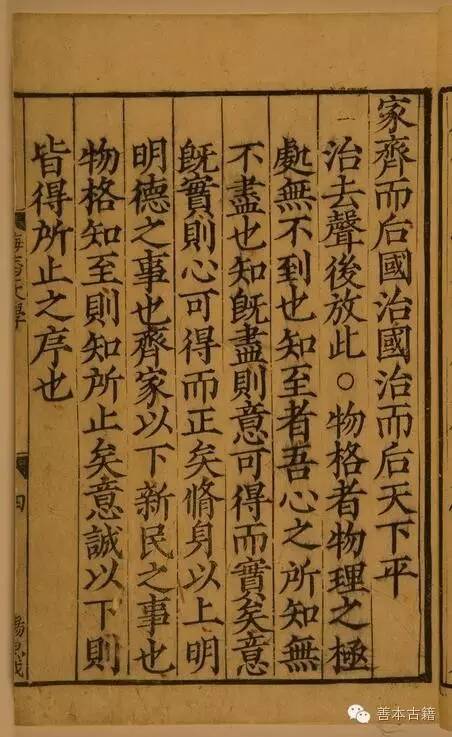 家齊而后國治國治而后天下平
治去聲後放此○物格者物理之極
處無不到也知至者吾心之所知無
不盡也知旣盡則意可得而實矣意
旣實則心可得而正矣脩身以上明
明德之事也齊家以下新民之事也
物格知至則知所止矣意誠以下則
皆得所止之序也
四
善本古籍